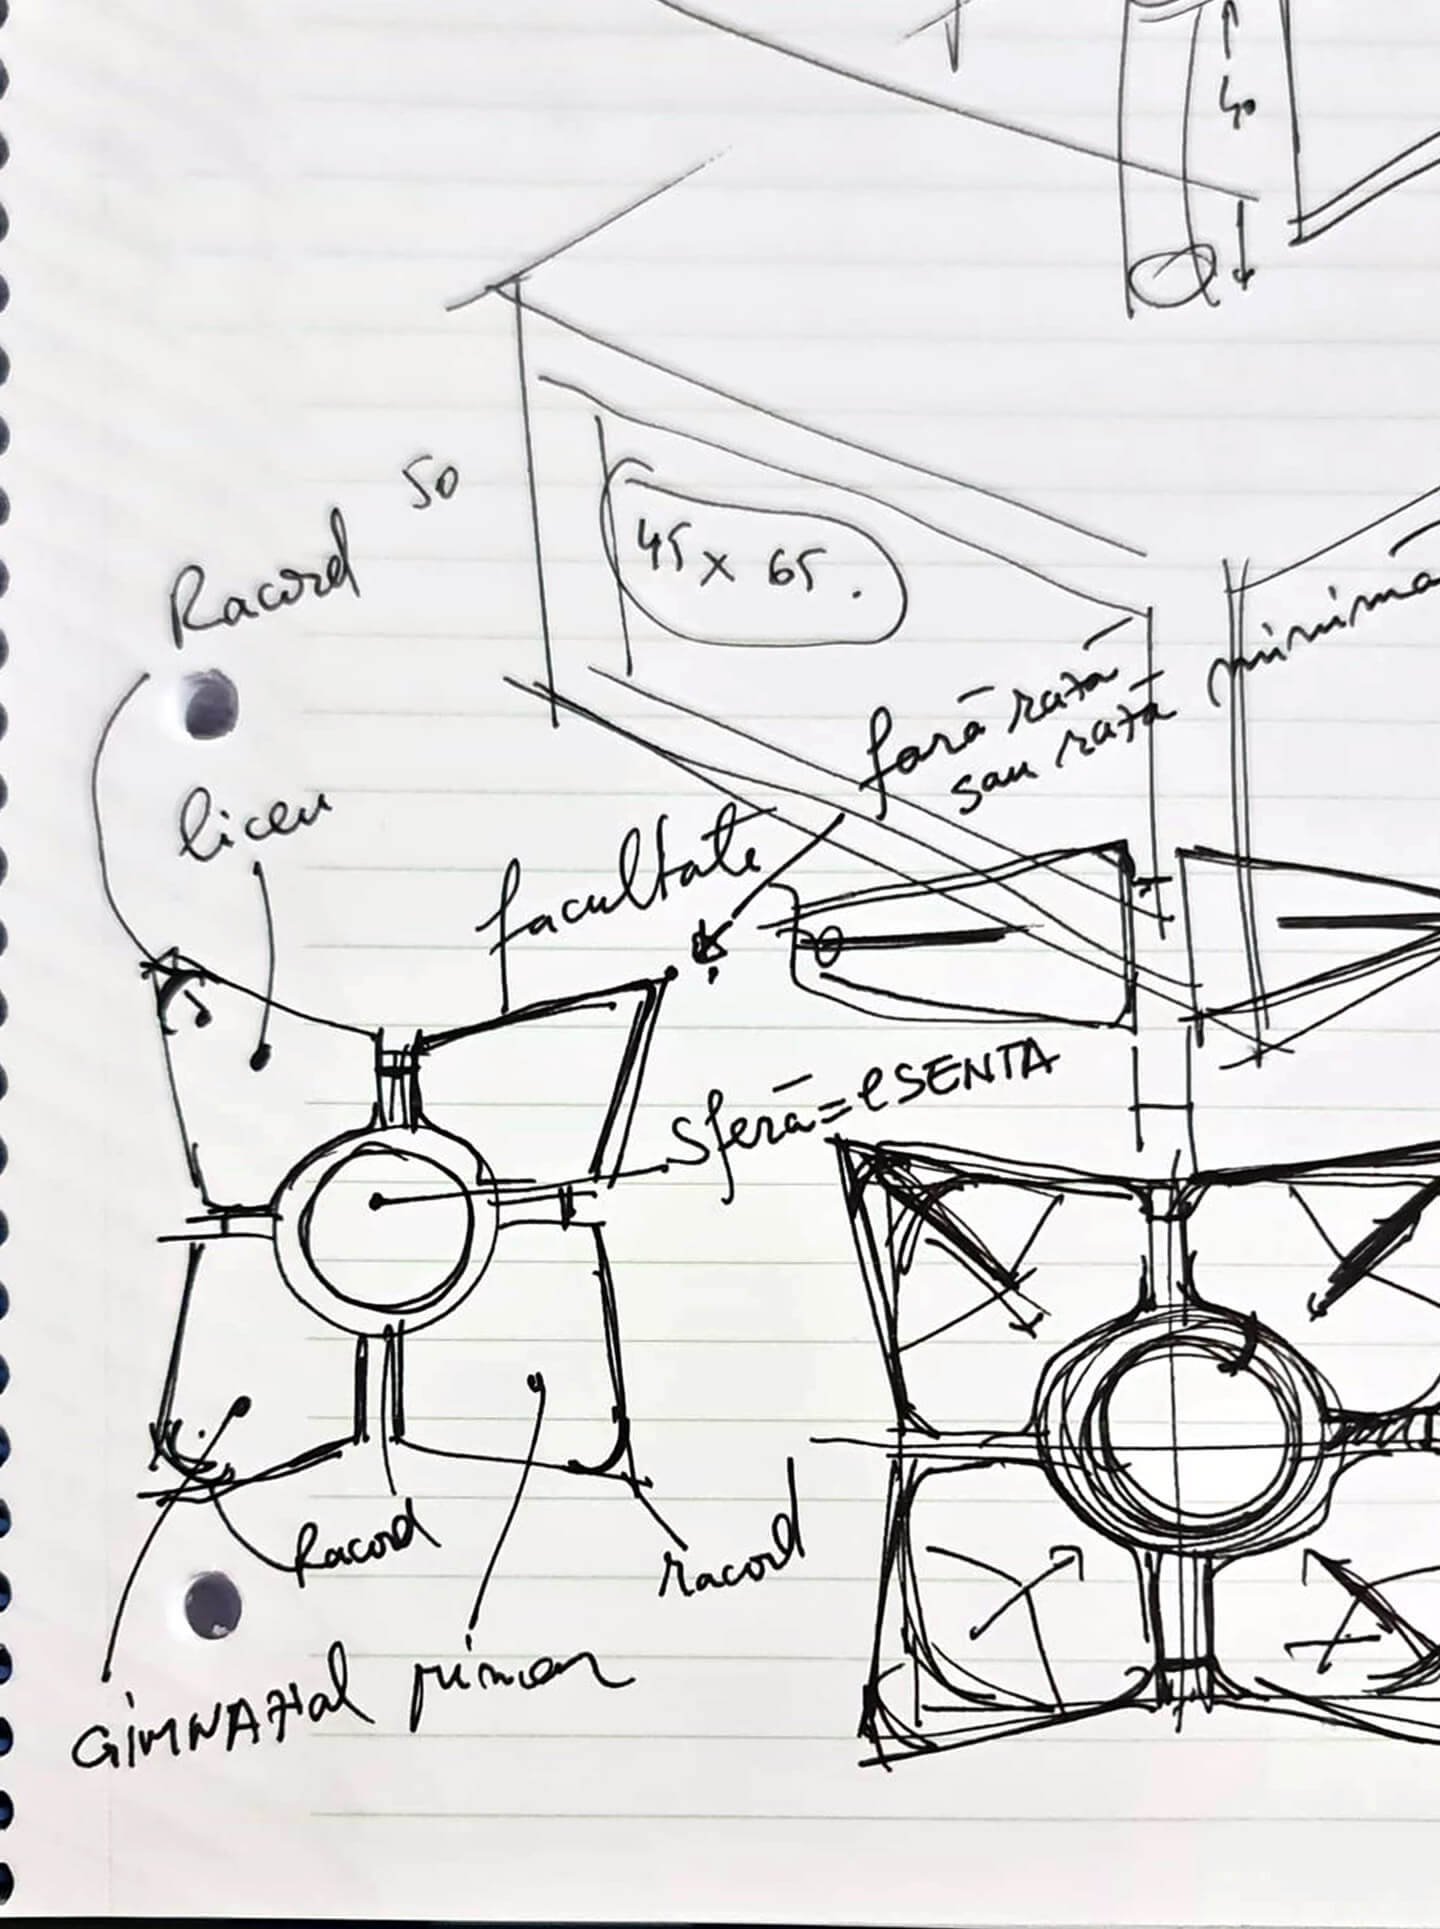 40
50
45 x 65.
Racord
fară rază
sau rază minimă
liceu
facultate
sferă = ESENTA
Racord
racord
GIMNAZIAL
primar